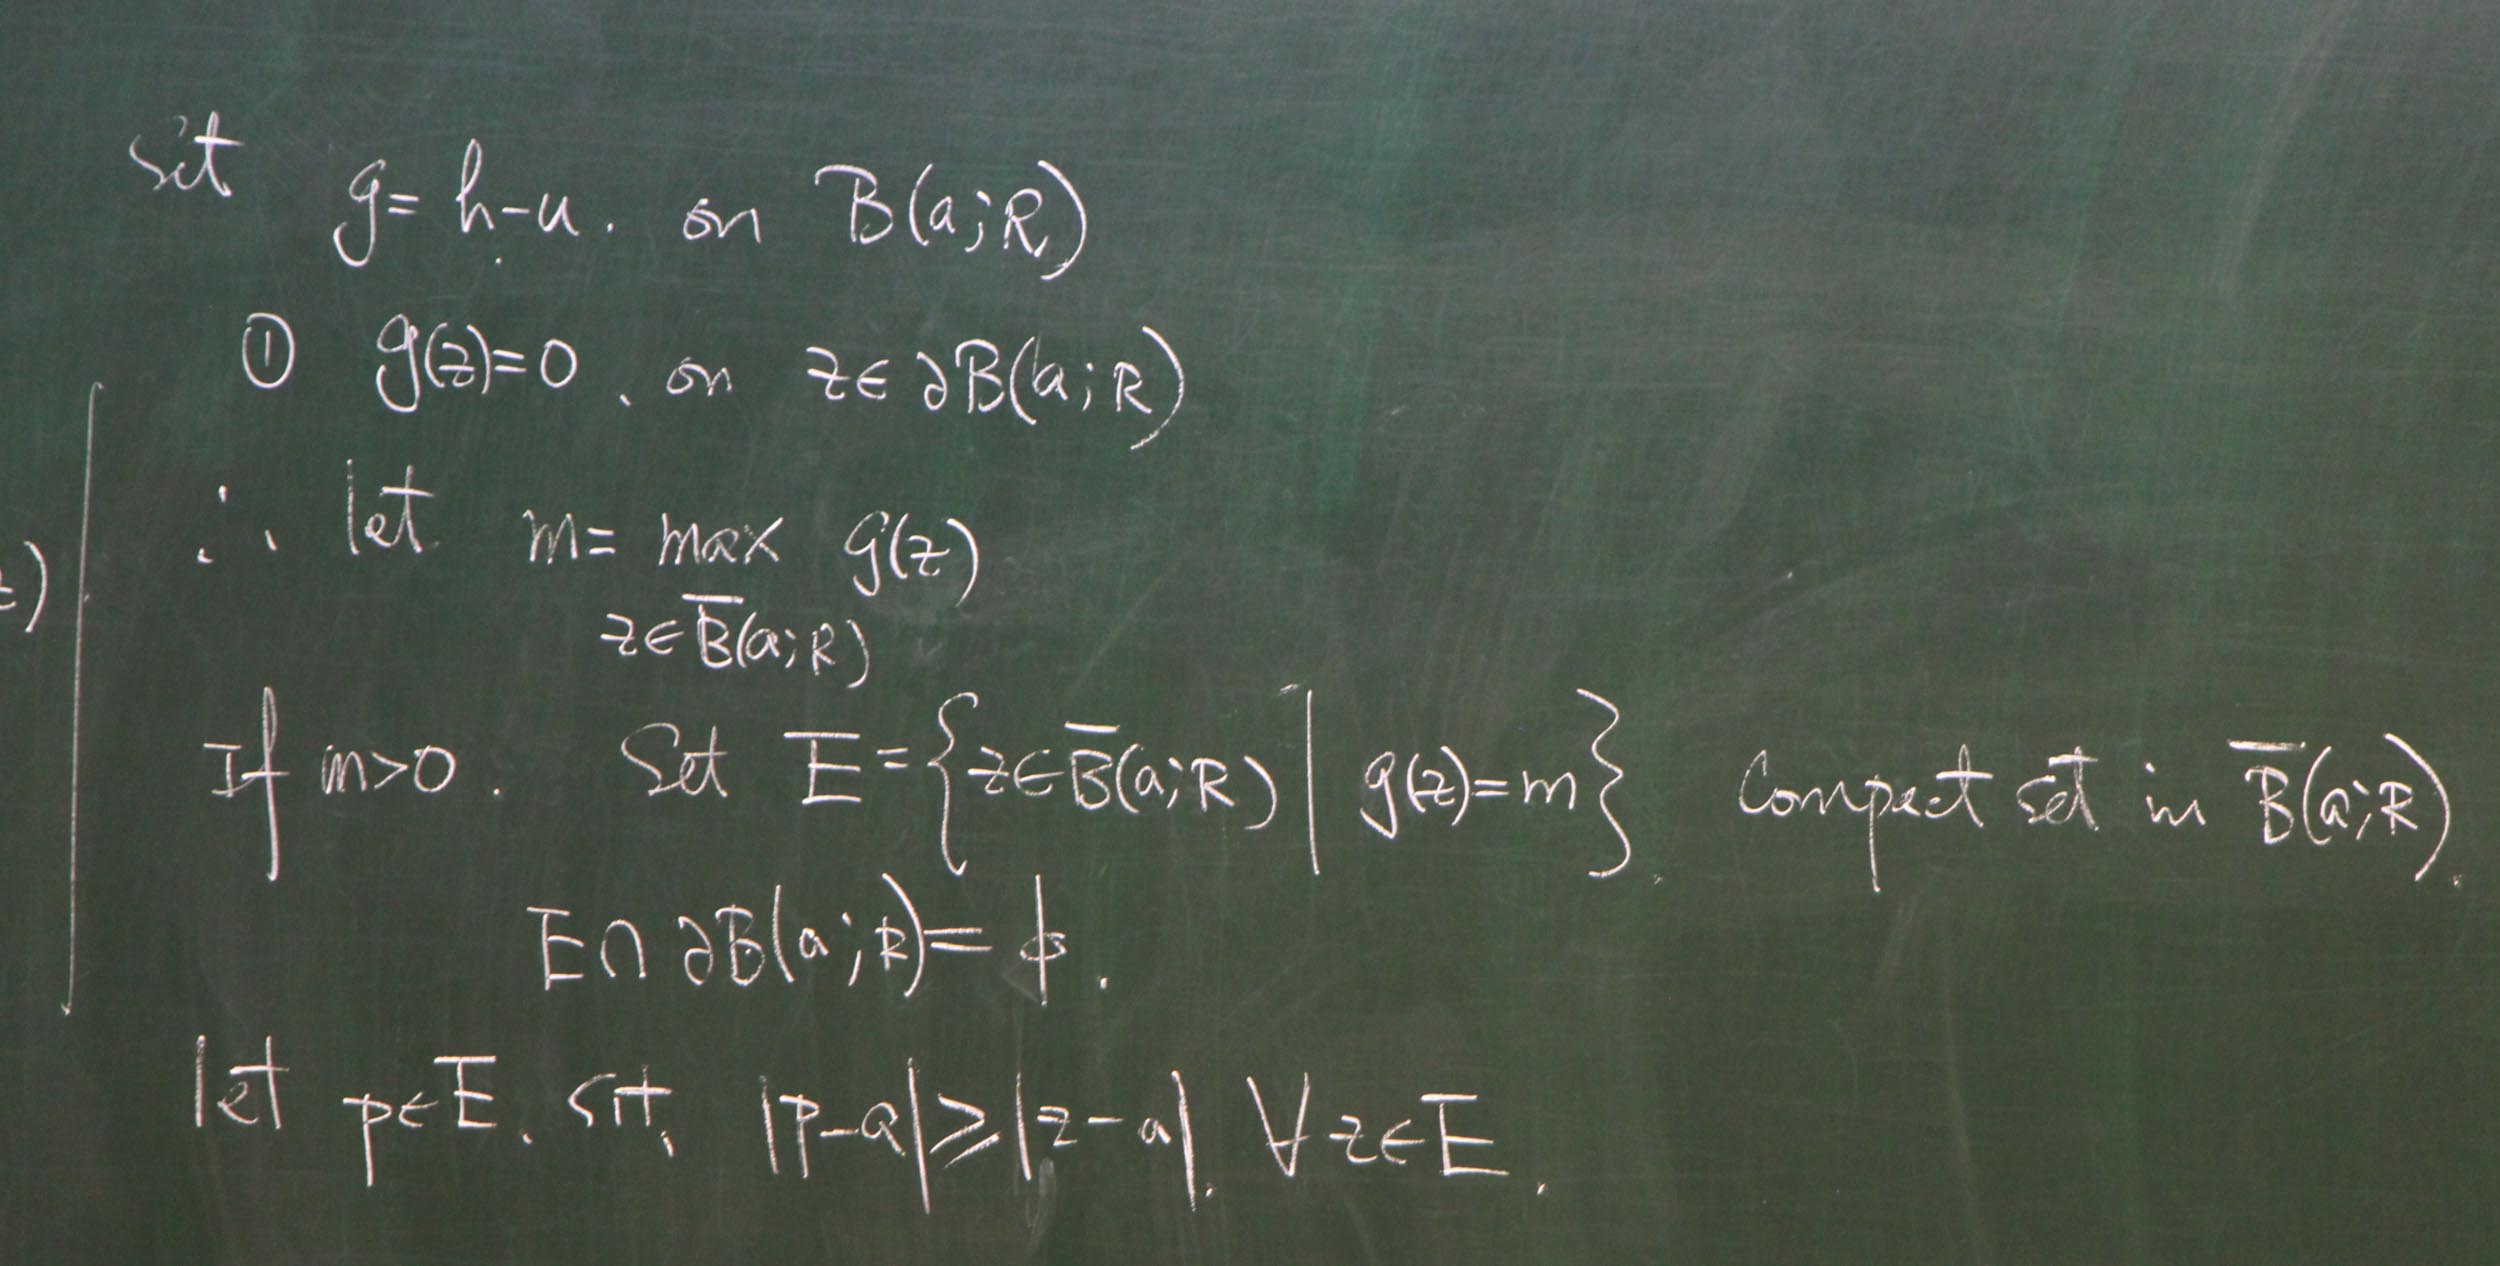 set g = h-u. on B(a;R)
① g(z)=0. on z∈∂B(a;R)
∴ let m = max g(z)
z∈B̅(a;R)
)
If m>0. Set E = {z∈B̅(a;R) | g(z)=m}. Compact set in B̅(a;R).
E∩∂B(a;R) = ϕ.
let p∈E. s.t. |p-a| ≥ |z-a|. ∀z∈E.